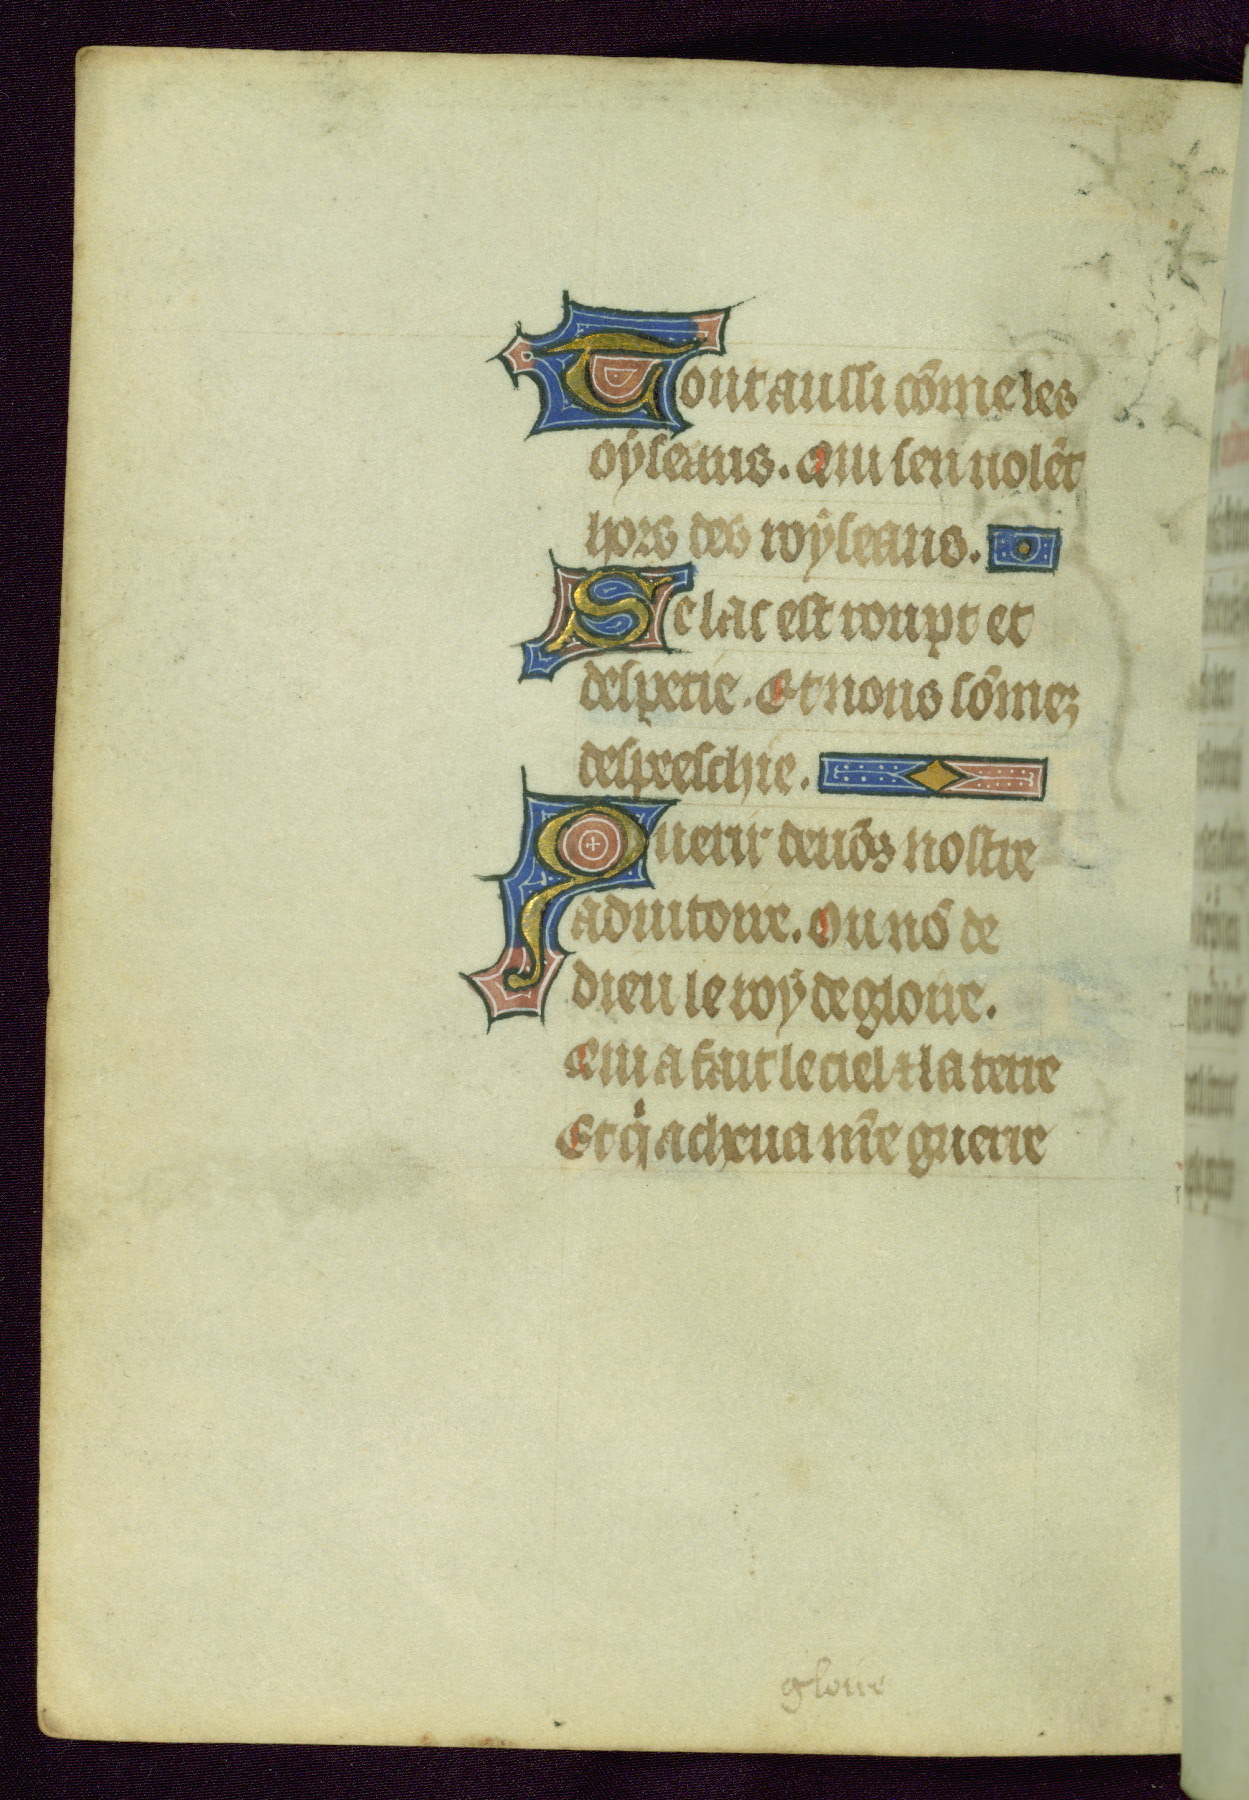 Tout aussi cõme les
oyseaus. Qui sen uolẽt
hors des royseaus.
Se lac est roupt et
despetie. Et nous sõmez
despeschie.
Querir deuõs nostre
adiutoire. Ou nõ de
dieu le roy de gloire.
Qui a fait le ciel ⁊ la terre
Et q̃ acheua nr̃e guerre
gloire